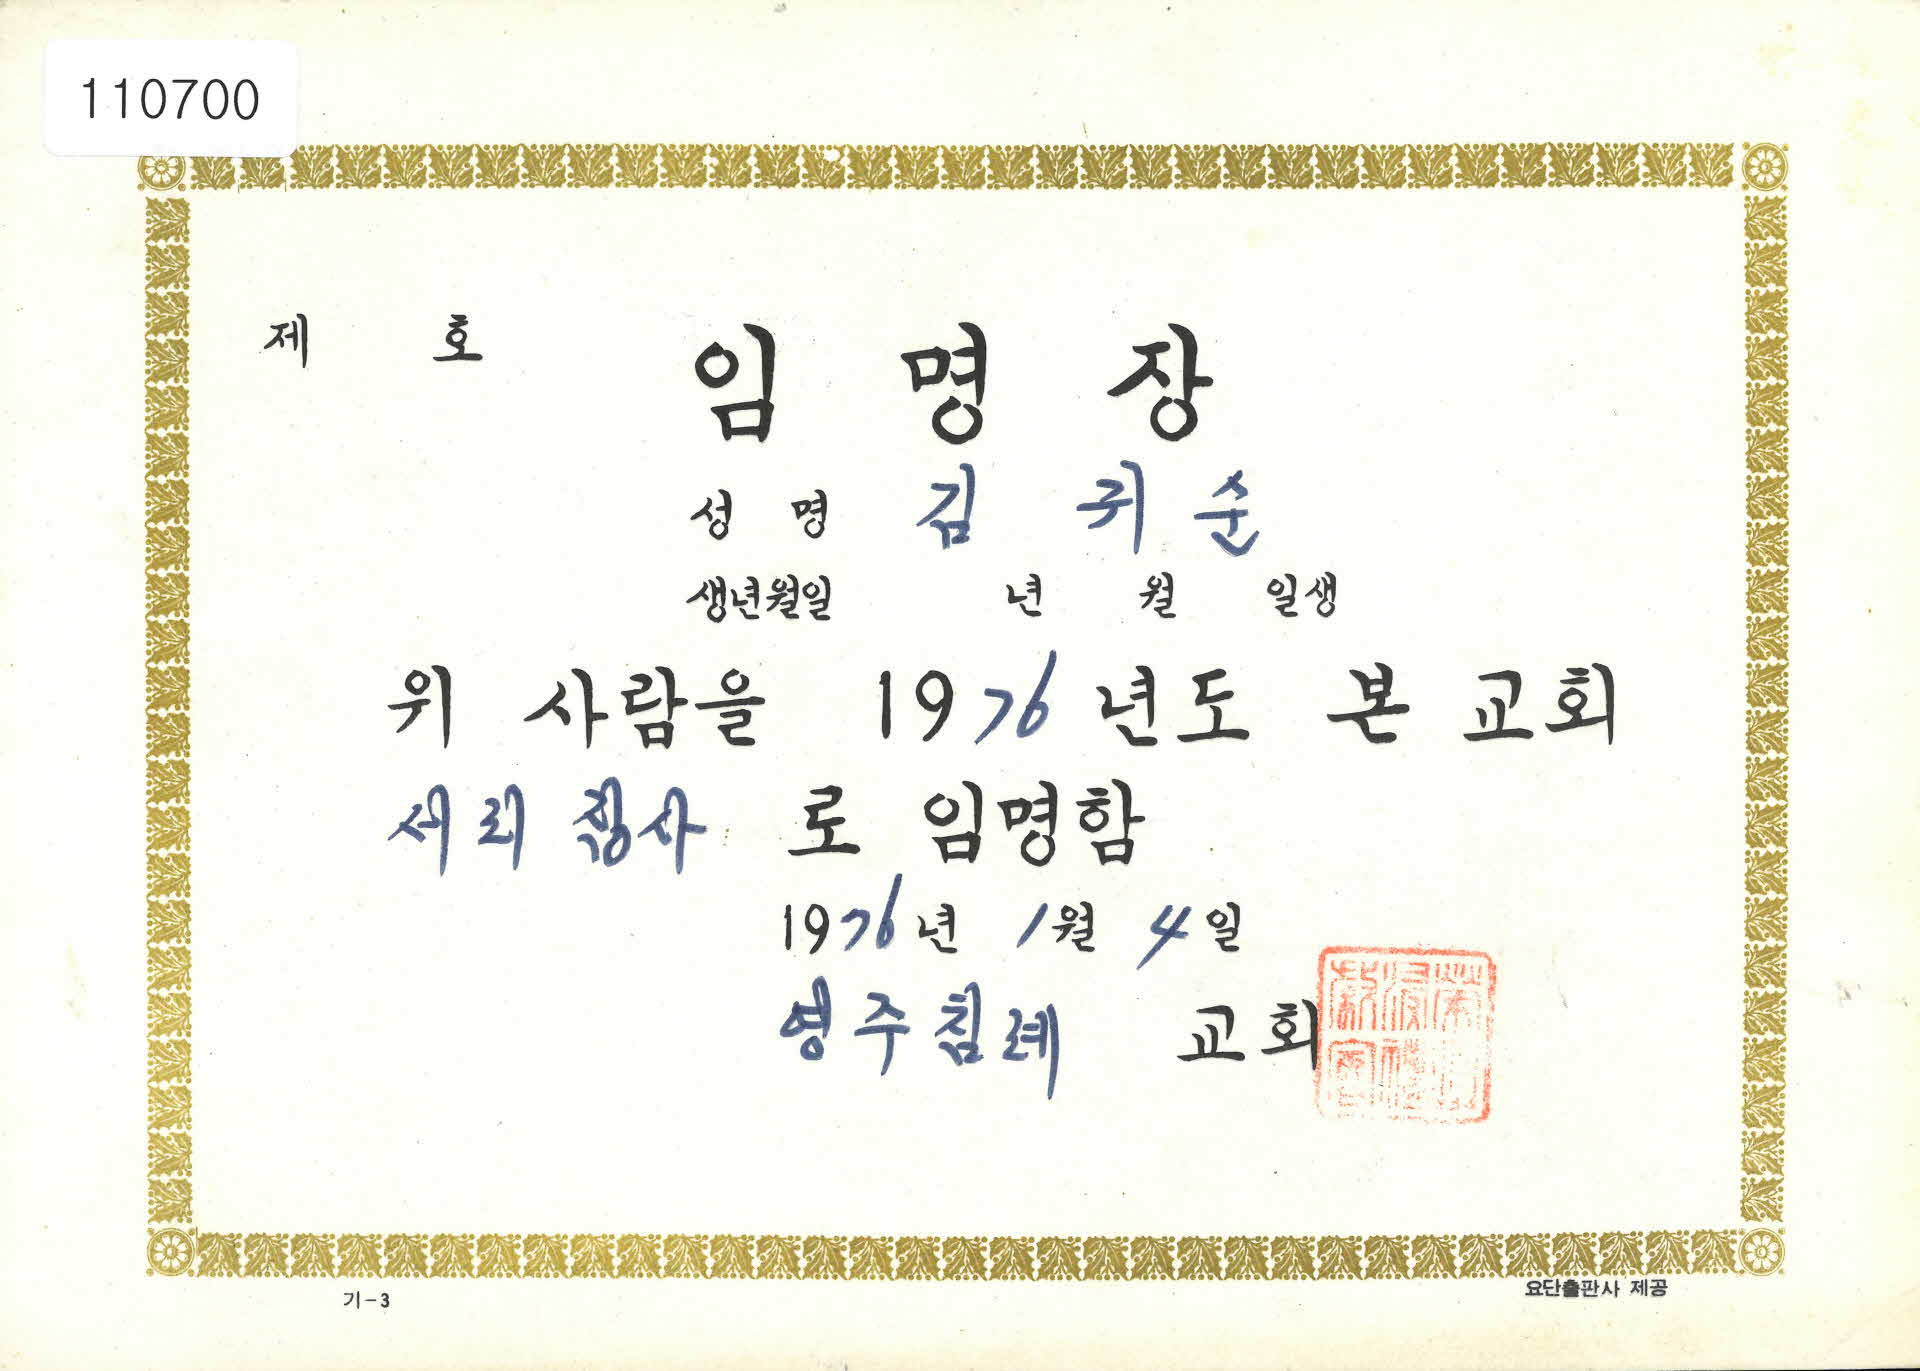 110700
제 호
임 명 장
성 명 김 귀 순
생년월일 년 월 일생
위 사람을 1976년도 본 교회
서리 집사 로 임명함
1976년 1월 4일
영주침례 교회
기-3
요단출판사 제공